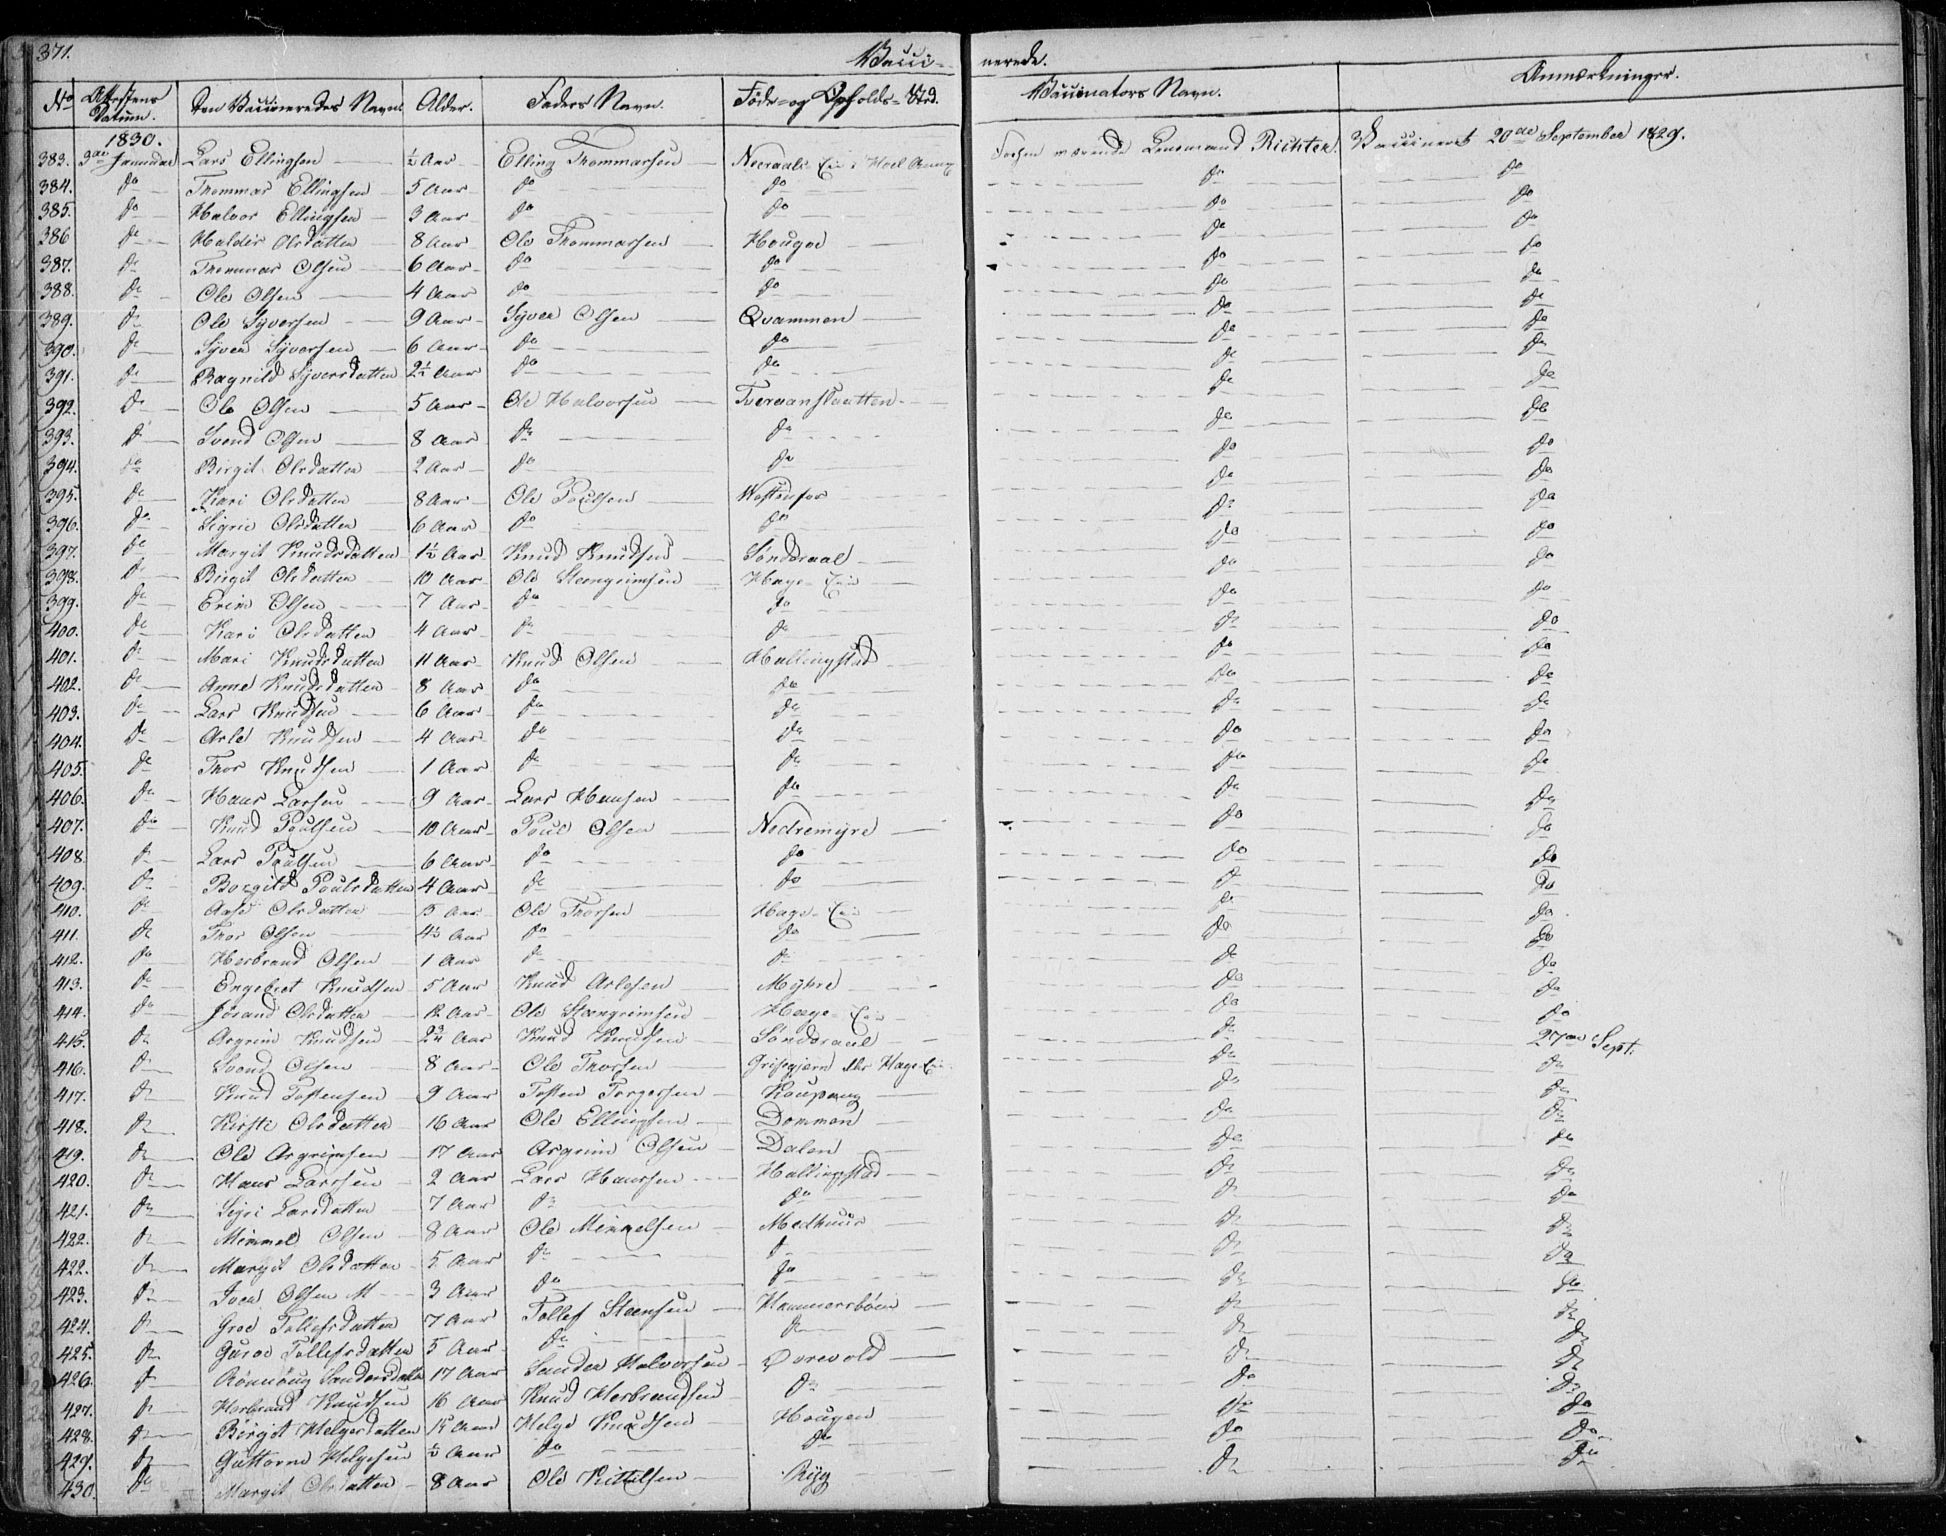 371. Vacci- nerede.
No Attestens Datum. Den Vaccineredes Navn. Alder. Faders Navn. Føde- og Opholds-Sted. Vaccinators Navn. Anmærkninger.
1830.
383. 3die Lars Ellingsen ½ Aar Elling Thommassen i Hoel værende Lensmand Richter. Vaccineret 20de September 1829.
384. do Thommas Ellingsen 5 Aar do do do do
385. do Halvor Ellingsen 3 Aar do do do do
386 do Olsdatter 8 Aar Ole Thommassen Hougoe do do
387. do Thommas Olsen 6 Aar do do do do
388. do Ole Olsen 4 Aar do do do do
389. do Ole Syversen 9 Aar Syver Olsen Qvammen do do
390. do Syver Syversen 6 Aar do do do do
391. do Ragnild Syversdatter 2½ Aar do do do do
392. do Ole Olsen 5 Aar Ole Halvorsen do do
393. do Svend Olsen 8 Aar do do do do
394. do Birgit Olsdatter 2 Aar do do do do
395. do Kari Olsdatter 8 Aar Ole Poulsen do do
396. do Sigrie Olsdatter 6 Aar do do do do
397. do Margit Knudsdatter 1½ Aar Knud Knudsen Sønderaal do do
398. do Birgit Olsdatter 10 Aar Ole Steengrimsen Hage-Eie do do
399. do Erik Olsen 7 Aar do do do do
400. do Kari Olsdatter 4 Aar do do do do
401. do Mari Knudsdatter 11 Aar Knud Olsen Hallingstad do do
402. do Anne Knudsdatter 8 Aar do do do do
403. do Lars Knudsen 6 Aar do do do do
404. do Asle Knudsen 4 Aar do do do do
405. do Thor Knudsen 1 Aar do do do do
406. do Hans Larsen 9 Aar Lars Hansen do do do
407. do Knud Poulsen 10 Aar Poul Olsen Nedremyre do do
408 do Lars Poulsen 6 Aar do do do do
409. do Borgild Poulsdatter 4 Aar do do do do
410. do Aase Olsdatter 5 Aar Ole Thorsen Hage-Eie do do
411. do Thor Olsen 4½ Aar do do do do
412. do Herbrand Olsen 1 Aar do do do do
413. do Engebret Knudsen 5 Aar Knud Aslesen Myhre do do
414. do Jørand Olsdatter 12 Aar Ole Steengrimsen Hage-Eie do do
415. do Asgrim Knudsen 2¾ Aar Knud Knudsen Sønderaal do 27de Sept.
416. do Svend Olsen 8 Aar Ole Thorsen Grisegjerd Hage-Eie do do
417. do Knud Tostensen 9 Aar Tosten Torgersen Kaupang do do
418. do Kirsti Olsdatter 16 Aar Ole Ellingsen Dommen do do
419. do Ole Asgrimsen 17 Aar Asgrim Olsen Dalen do do
420. do Hans Larssen 2 Aar Lars Hanssen Hallingstad do do
421. do Sigri Larsdatter 7 Aar do do do do
422. do Mimmel Olsen 8 Aar Ole Mimmelsen Medhuus do do
422. do Margit Olsdatter 5 Aar do do do do
423. do Iver Olsen M 3 Aar do do do do
424. do Groe Tollefsdatter 7 Aar Tollef Steensen Hammersbøen do do
425. do Guroe Tollefsdatter 5 Aar do do do do
426. do Rønnoug Sandersdatter 17 Aar Sander Halvorsen Ørevold do do
427. do Herbrand Knudsen 16 Aar Knud Herbrandsen do do do
428. do Birgit Helgesdatter Aar Helge Knudsen Hougen do do
429. do Guttorm Helgesen ½ Aar do do do do
430. do Margit Olsdatter 8 Aar Ole Kittelsen Ryg do do